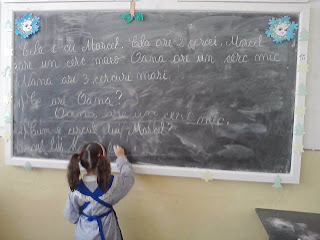 Ela e cu Marcel. Ela are 2 cercei. Marcel
are un cerc mare. Oana are un cerc mic
Nana are 3 cercuri mari.
Ce are Oana?
Oana are un cerc mic.
Cum e cercul lui Marcel?